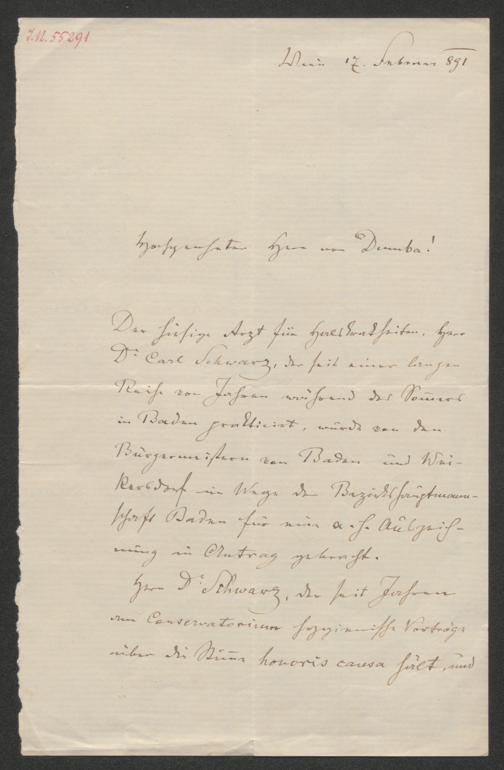 J.N. 55291
Wien 17. Februar 891
Hochgeehrter Herr von Dumba!
Der hiesige Arzt für Halskrankheiten, Herr
Dr. Carl Schwarz, der seit einer langen
Reihe von Jahren während des Som̅ers
in Baden prakticirt, wurde von den
Bürgermeistern von Baden und Wei-
kersdorf im Wege der Bezirkshauptmann-
schaft Baden für eine a. h. Auszeich-
nung in Antrag gebracht.
Herr Dr. Schwarz, der seit Jahren
am Conservatorium hygienische Vorträge
über die Stim̅e honoris causa hält, und